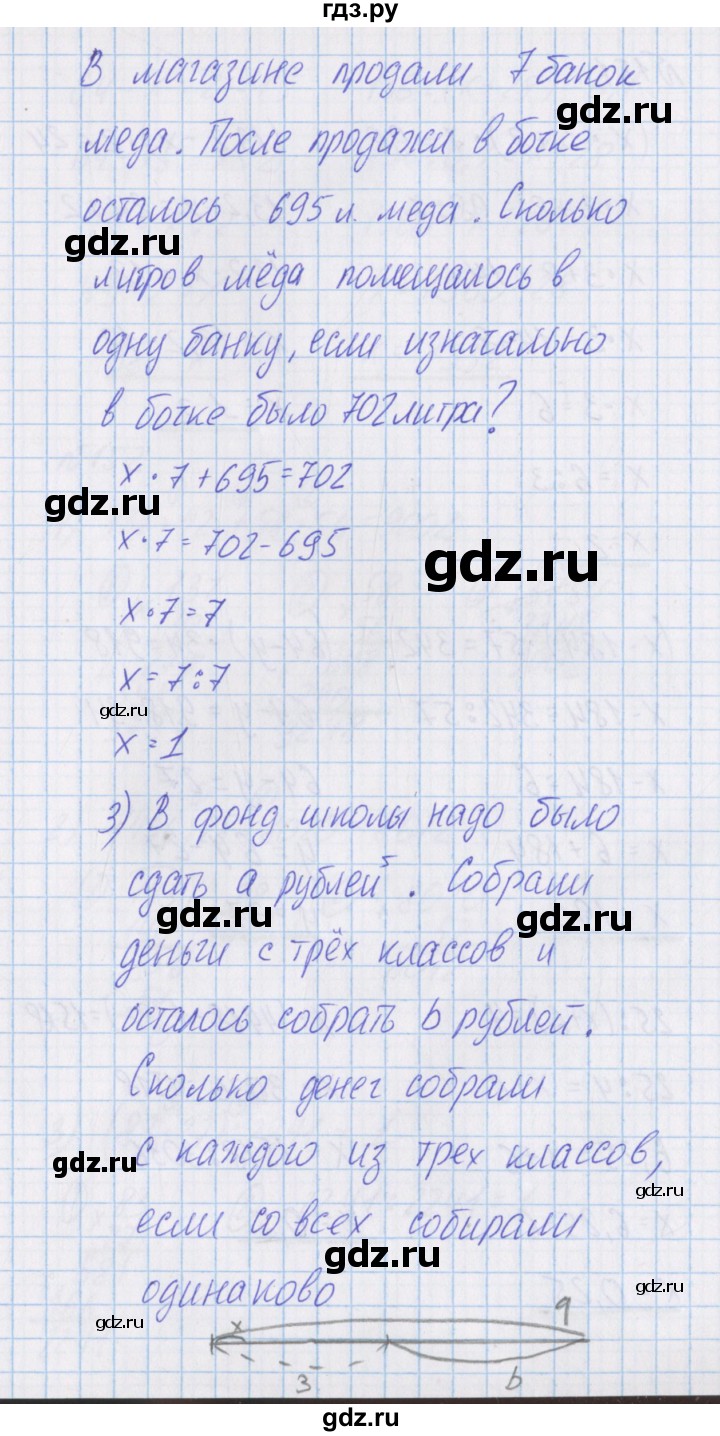 гдз.ру
В магазине продали 7 банок
gdz.ru
меда. После продажи в бочке
осталось 695 л. меда. Сколько
gdz.ru
литров мёда помещалось в
одну банку, если изначально
в бочке было 702 литра?
x · 7 + 695 = 702
gdz.ru
x · 7 = 702 - 695
gdz.ru
x · 7 = 7
x = 7 : 7
gdz.ru
x = 1
3) В фонд школы надо было
сдать a рублей. Собрали
gdz.ru gdz.ru
деньги с трёх классов и
осталось собрать b рублей.
Сколько денег собрали
gdz.ru
с каждого из трех классов,
gdz.ru
если со всех собирали
gdz.ru
одинаково
gdz.ru
x a
3 b
gdz.ru